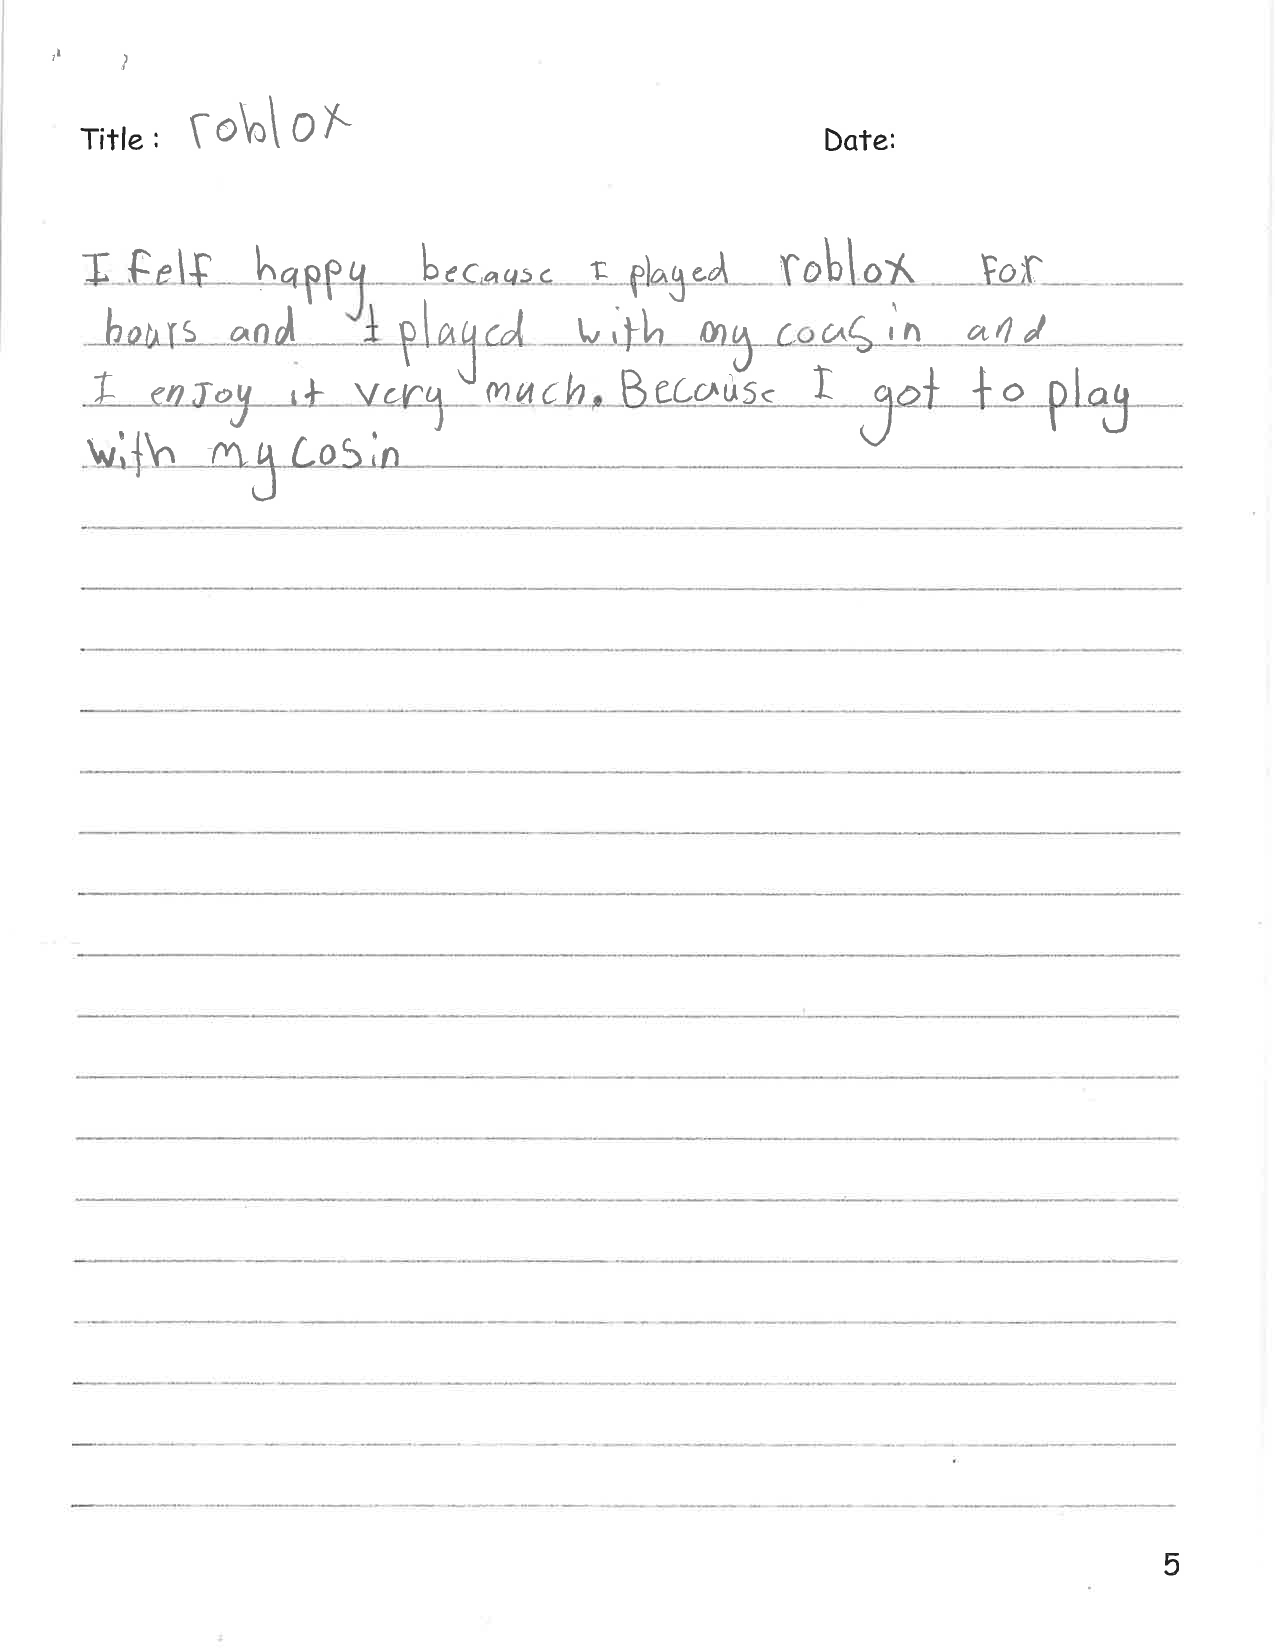 Title : roblox
Date:
I felf happy because I played roblox For
hours and I played with my cousin and
I enJoy it very much. Because I got to play
with my cosin
5